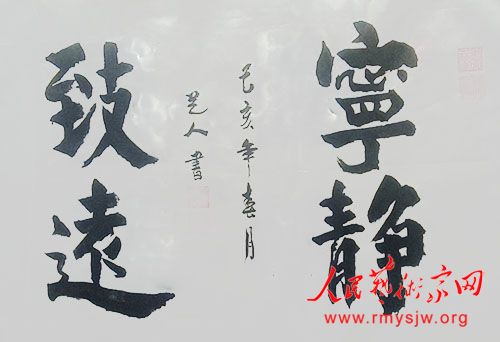 寧静
己亥年春月
艺人書
致遠
人民藝術家网
www.rmysjw.org